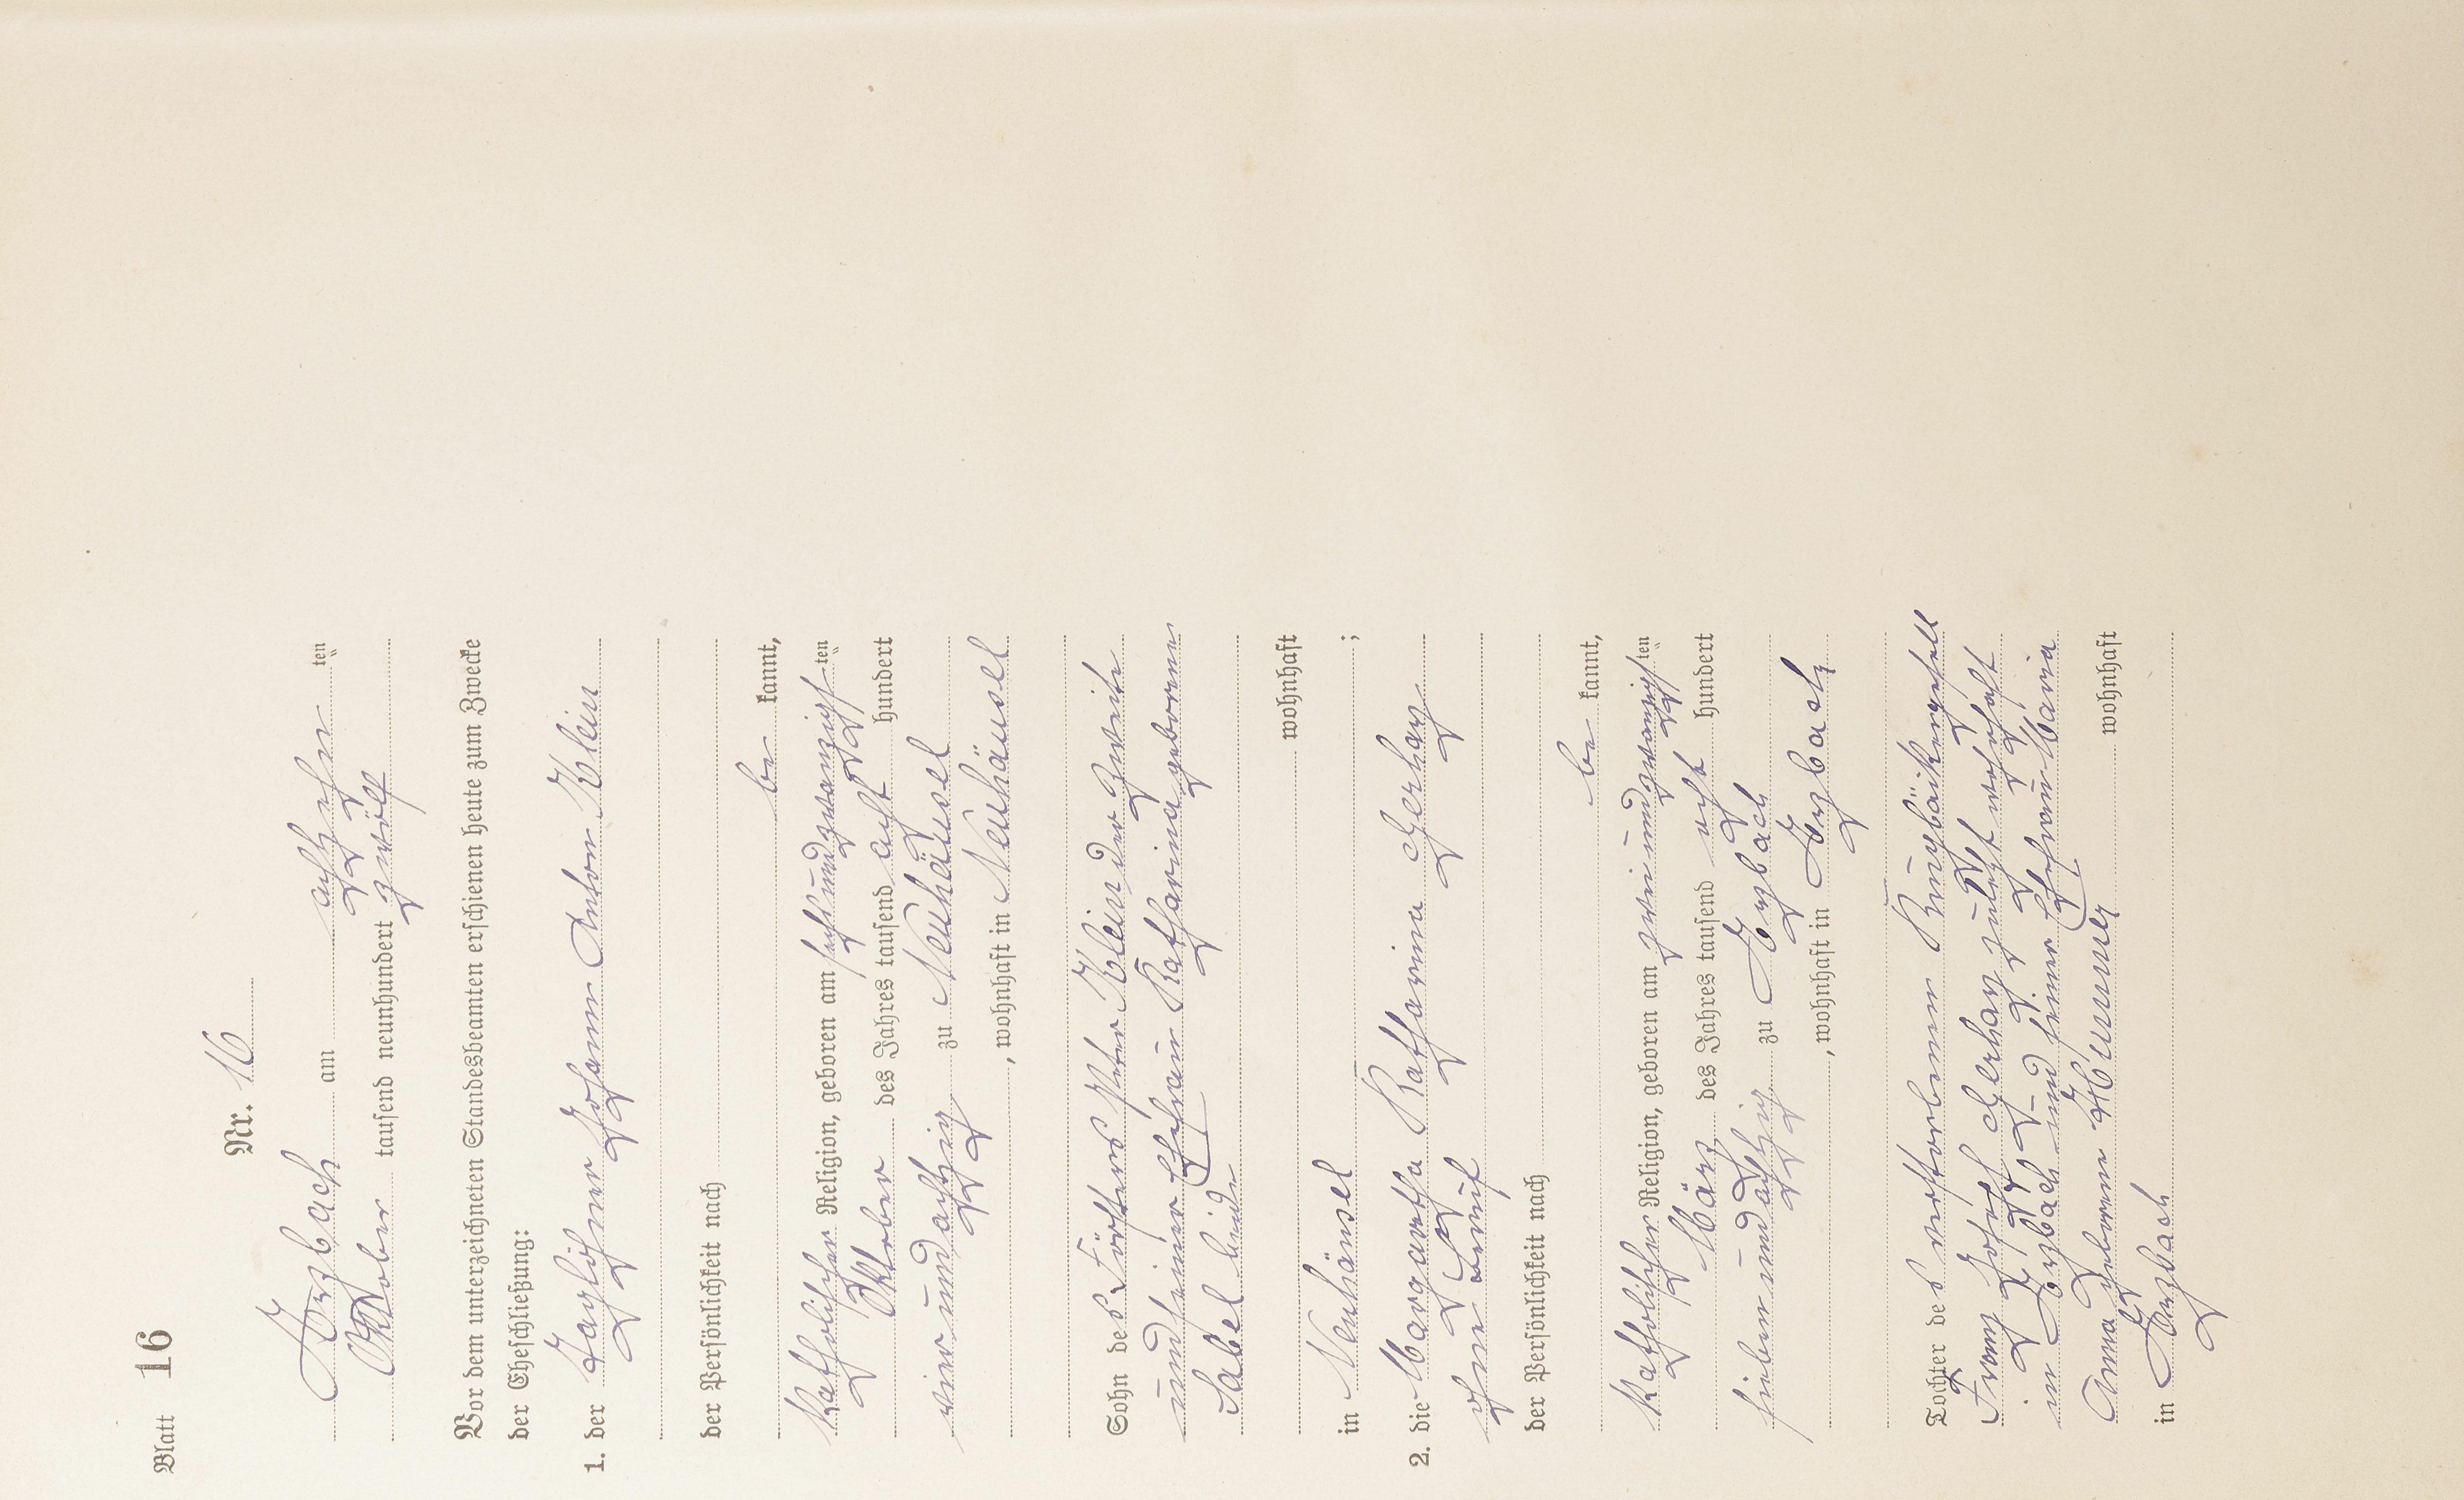 Blatt 16
Nr. 16
Arzbach am achtzehn ten
Oktober tausend neunhundert zwölf
Vor dem unterzeichneten Standesbeamten erschienen heute zum Zwecke
der Eheschließung:
1. der Taglöhner Johann Anton Klein
der Persönlichkeit nach
be kannt,
katholischer Religion, geboren am sechsundzwanzigsten
Oktober des Jahres tausend acht hundert
vierundachtzig zu Neuhäusel
, wohnhaft in Neuhäusel
Sohn des Försters Peter Klein der Zweite
und seiner Ehefrau Katharina geborene
Sabel beide
wohnhaft
in Neuhäusel ;
2. die Margaretha Katharina Gerharz
ohne Beruf
der Persönlichkeit nach
be kannt,
katholischer Religion, geboren am zweiundzwanzigsten
März des Jahres tausend acht hundert
siebenundachtzig zu Arzbach
, wohnhaft in Arzbach
Tochter des verstorbenen
Franz Josef Gerharz zuletzt wohnhaft
in Arzbach und seiner Ehefrau Maria
Anna geborene wohnhaft
in Arzbach